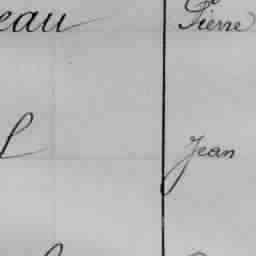 eau Pierre
l Jean